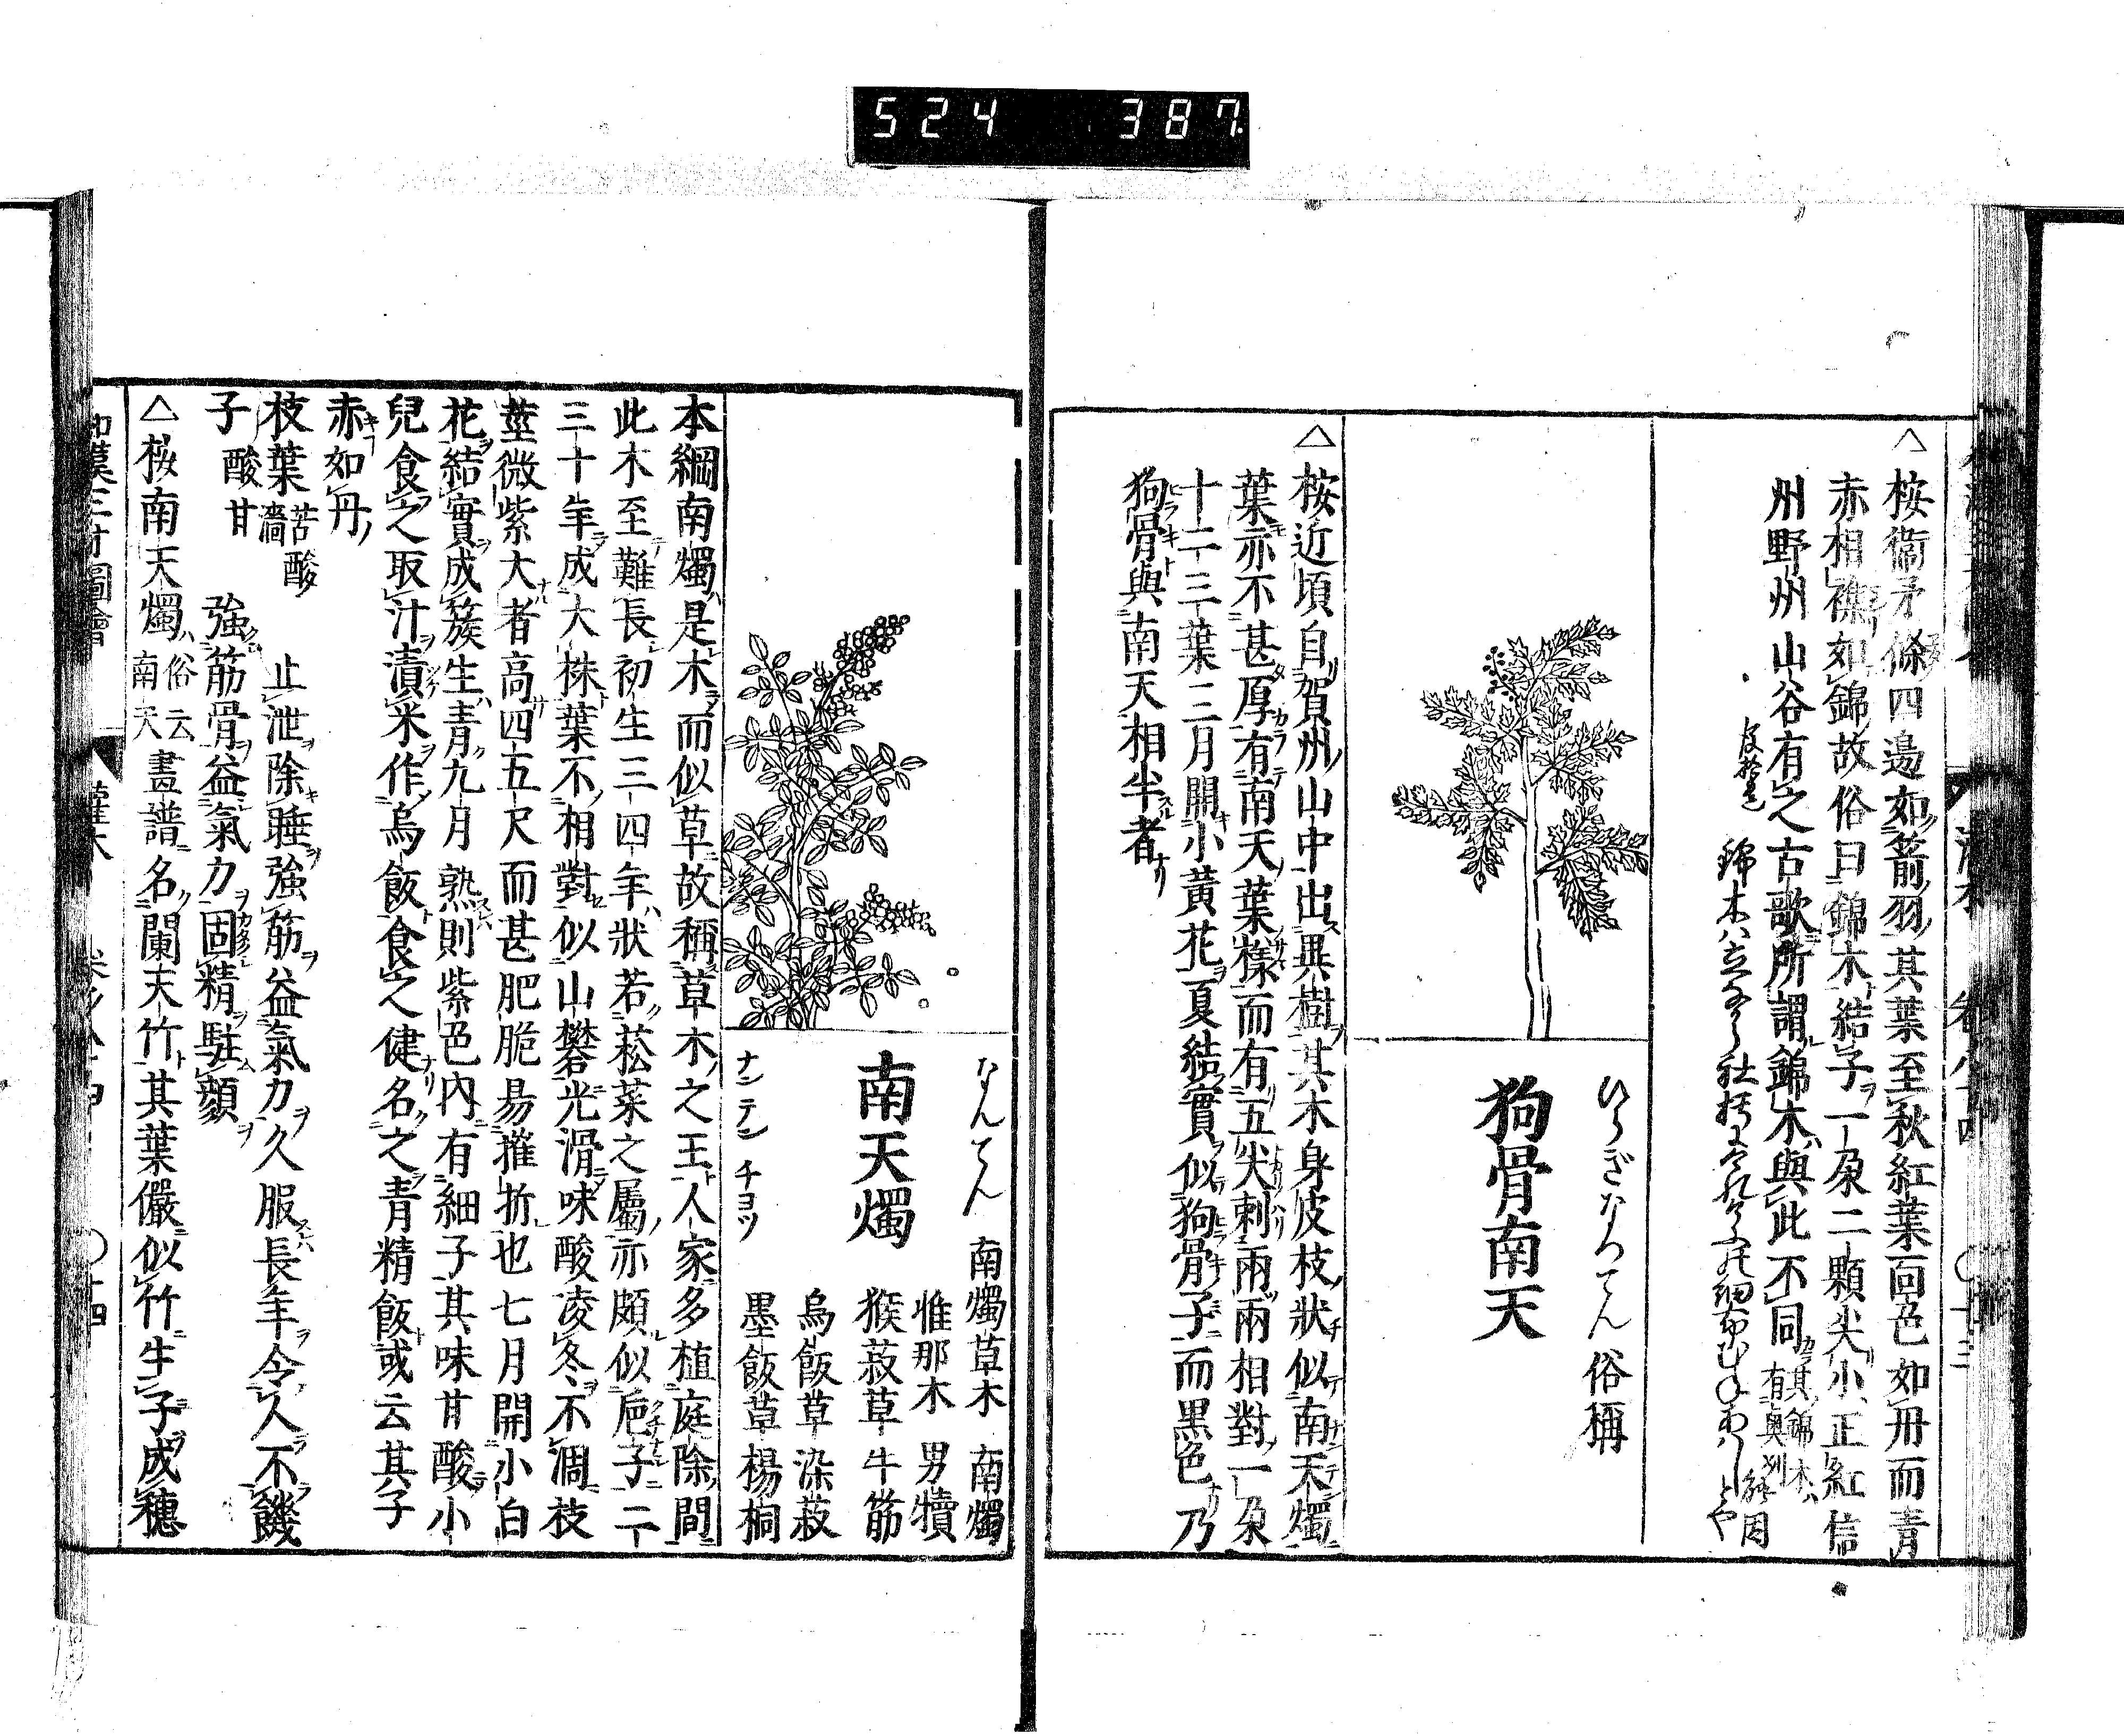 524 387
△桉衞矛條四邊如箭羽其葉至秋紅葉靣色如丹而青
赤相襍如錦故俗曰錦木結子一朶二顆尖小正紅信
州野州山谷有之古歌所謂錦木與此不同其錦木ハ有奥州
後拾遺
錦木ハ立な
能因
ひらぎなんてん 俗稱
狗骨南天
△桉近頃自賀州山中出異樹其木身皮枝狀似南天燭
葉亦不甚厚有南天葉樣而有五尖刺兩兩相對一朶
十二三葉三月開小黃花夏結實似狗骨子而黒色乃
狗骨與南天相半者
なんてん
南天燭
ナンテン チヨツ
南燭草木 南燭
惟那木 男犢
猴菽草 牛筋
烏飯草 染菽
墨飯草 楊桐
本綱南燭是木而似草故稱草木之王人家多植庭除間
此木至難長初生三四年狀若菘菜之屬亦頗似巵子二
三十年成大株葉不相對似山礬光滑味酸凌冬不凋枝
莖微紫大者高四五尺而甚肥脆易摧折也七月開小白
花結實成簇生青九月熟則紫色內有細子其味甘酸小
兒食之取汁漬米作烏飯食之健名之青精飯或云其子
赤如丹
枝葉 苦酸濇 止泄除睡強筋益氣力久服長年令人不饑
子 酸甘 強筋骨益氣力固精駐顏
△桉南天燭俗云南天畫譜名闌天竹其葉儼似竹生子成穗
和漢三才圖會 灌木